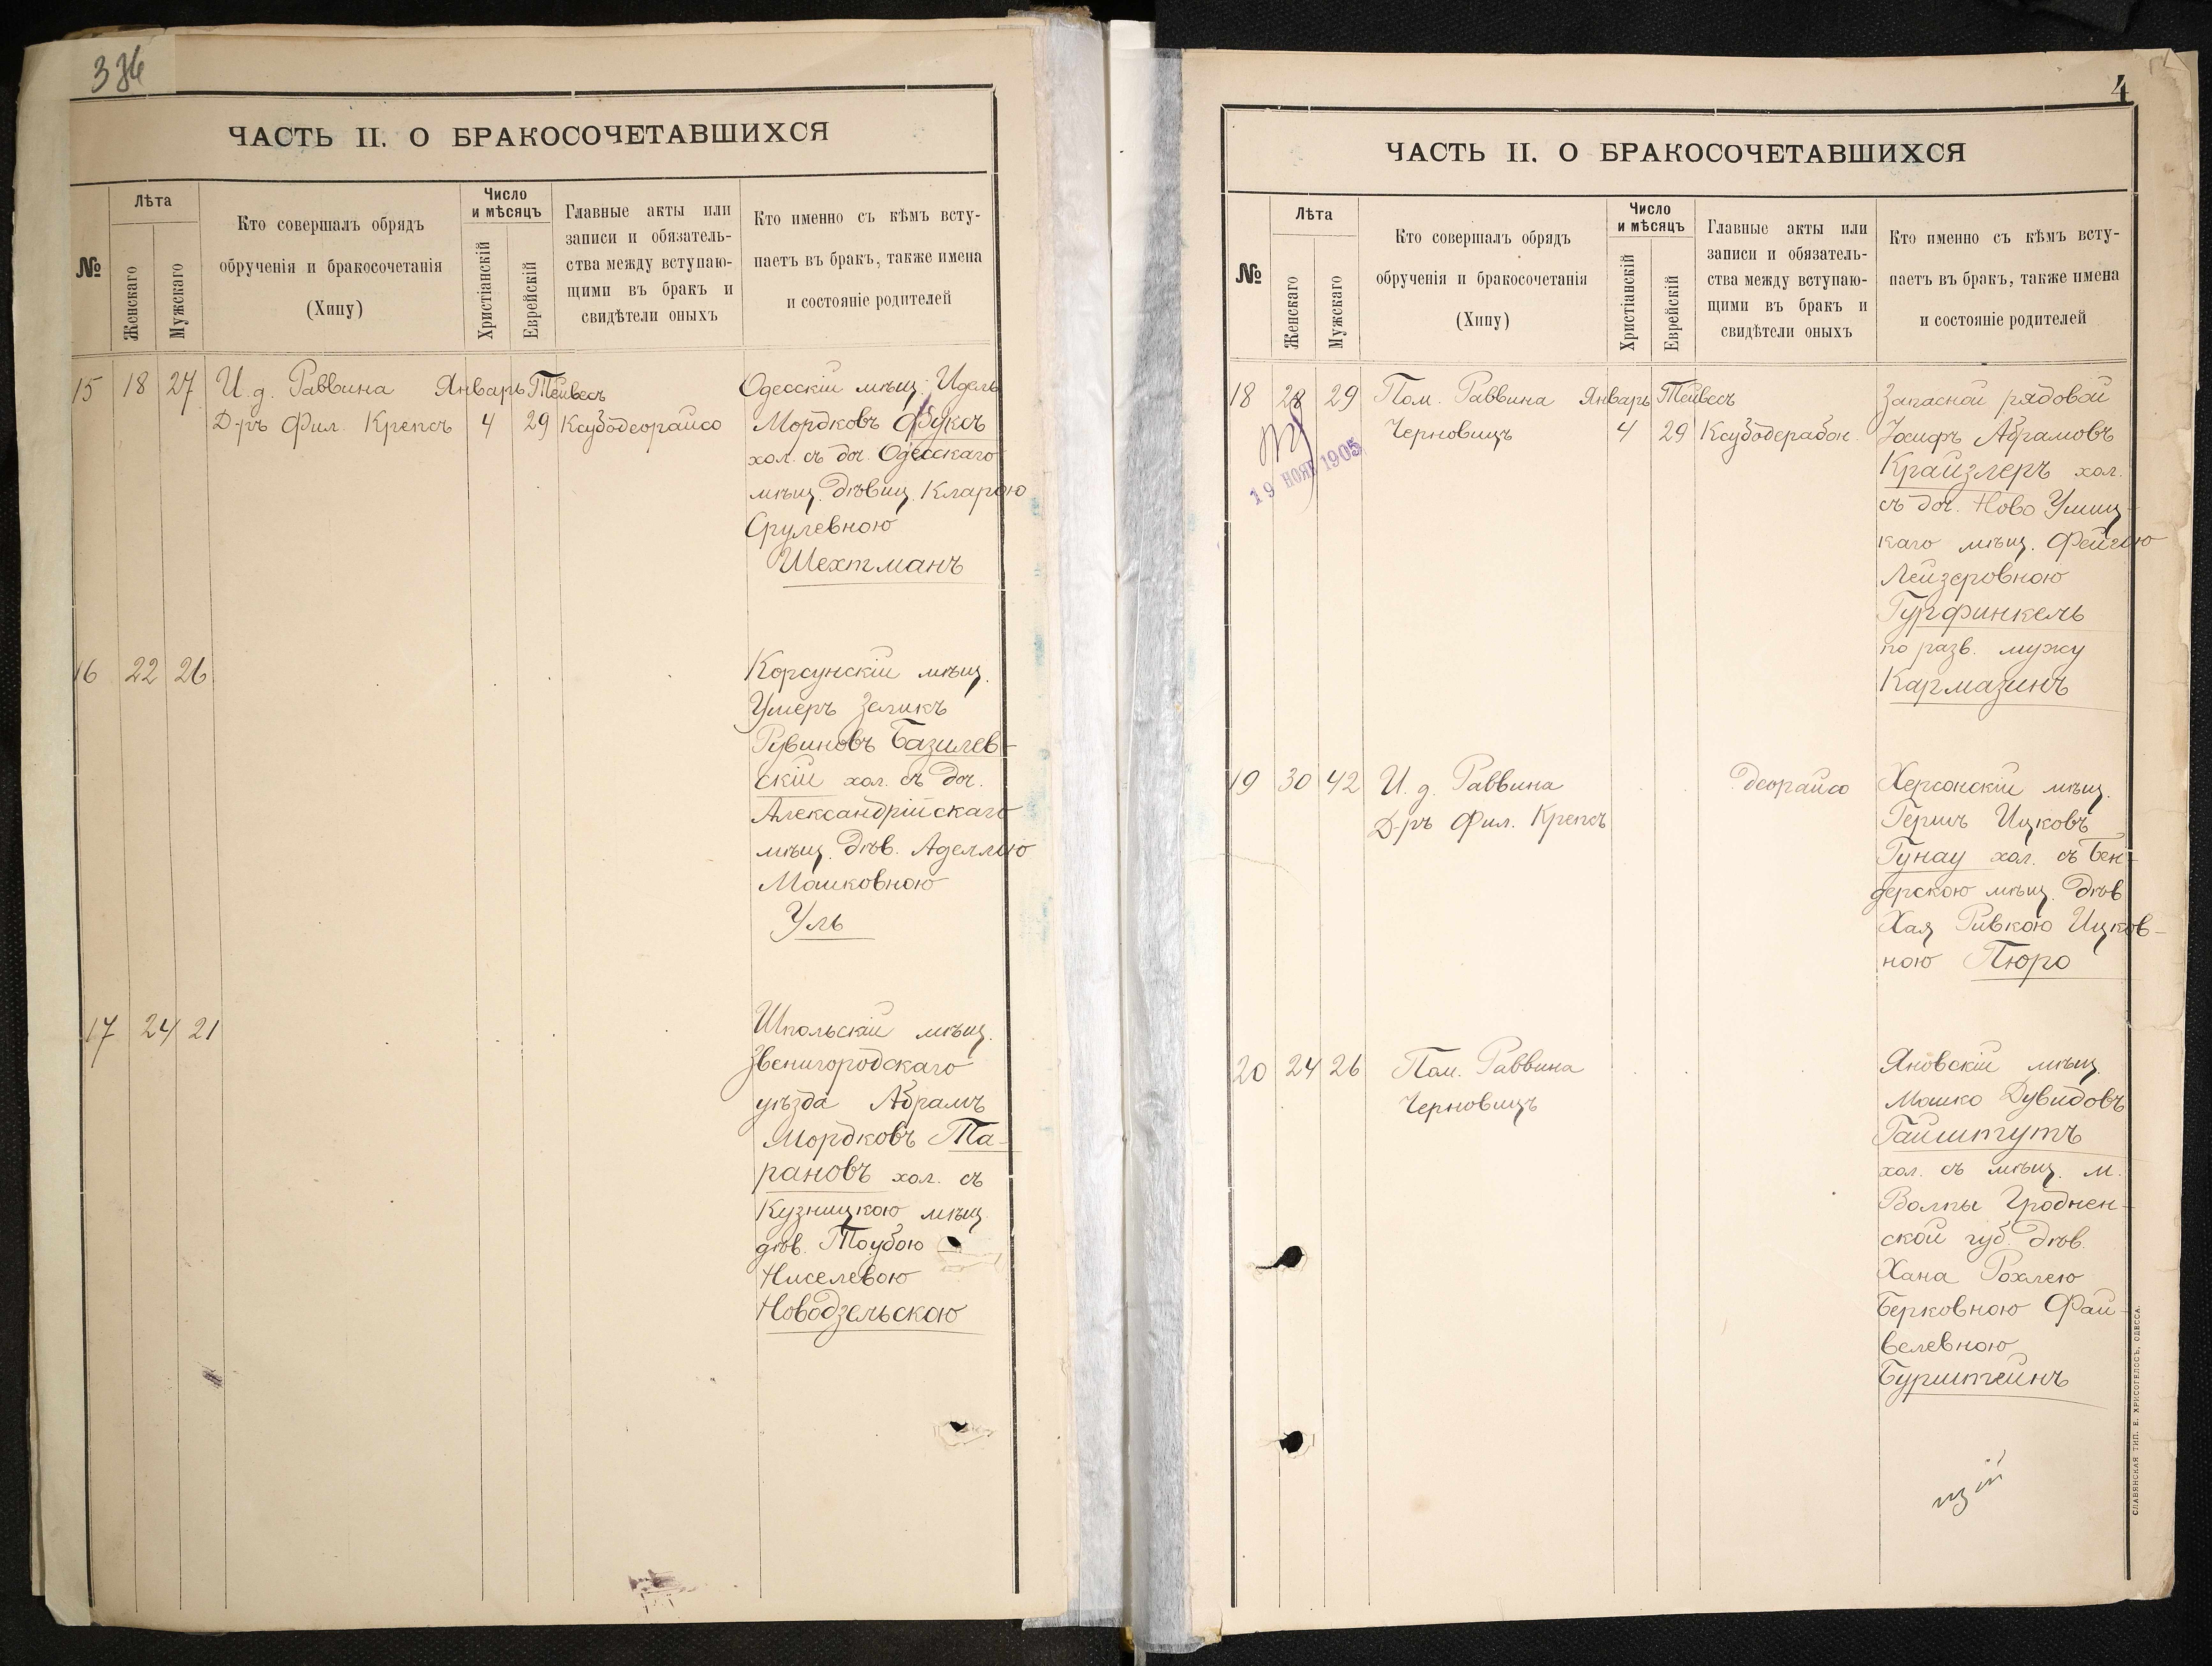 336
ЧАСТЬ II. О БРАКОСОЧЕТАВШИХСЯ
№
Лѣта
Женскаго
Мужскаго
Кто совершалъ обрядъ
обрученія и бракосочетанія
(Хипу)
Число
и мѣсяцъ
Христіанскій
Еврейскій
Главные акты или
записи и обязатель-
ства между вступаю-
щими въ бракъ и
свидѣтели оныхъ
Кто именно съ кѣмъ всту-
паетъ въ бракъ, также имена
и состояніе родителей
15 18 27 И. д. Раввина Январь Тейвесъ Одесскій мѣщ. Идель
Д-ръ Фил. Крепсъ 4 29 Ксубодеорайсо Мордковъ Фуксъ
хол. съ доч. Одесскаго
мѣщ. дѣвиц. Кларою
Срулевною
Шехтманъ
16 22 26 Корсунскій мѣщ.
Умеръ Зеликъ
Рувиновъ Базилев-
скій хол. съ доч.
Александрійскаго
мѣщ. дѣв. Аделлію
Мошковною
Уль
17 24 21 Шпольскій мѣщ.
Звенигородскаго
уѣзда Абрамъ
Мордковъ Та-
рановъ хол. съ
Кузницкою мѣщ.
дѣв. Тоубою
Ниселевою
Новодзельскою
4
ЧАСТЬ II. О БРАКОСОЧЕТАВШИХСЯ
№
Лѣта
Женскаго
Мужскаго
Кто совершалъ обрядъ
обрученія и бракосочетанія
(Хипу)
Число
и мѣсяцъ
Христіанскій
Еврейскій
Главные акты или
записи и обязатель-
ства между вступаю-
щими въ бракъ и
свидѣтели оныхъ
Кто именно съ кѣмъ всту-
паетъ въ бракъ, также имена
и состояніе родителей
18 28 29 Пом. Раввина Январь Тейвесъ Запасной рядовой
Черновицъ 4 29 Ксубодерабон. Іосифъ Абрамовъ
19 НОЯБ 1905
Крайзлеръ хол.
съ доч. Ново Ушиц-
каго мѣщ. Фейгою
Лейзеровною
Гурфинкель
по разв. мужу
Кармазинъ
19 30 42 И. д. Раввина деорайсо Херсонскій мѣщ.
Д-ръ Фил. Крепсъ Гершъ Ицковъ
Гунау хол. съ Бен-
дерскою мѣщ. дѣв
Хая Ривкою Ицков-
ною Пюро
20 24 26 Пом. Раввина Яновскій мѣщ.
Черновицъ Мошко Дувидовъ
Гайштутъ
хол. съ мѣщ. м.
Волпы Гроднен-
ской губ. дѣв.
Хана Рохлею
Берковною Фай-
велевною
Бурштейнъ
СЛАВЯНСКАЯ ТИП. Е. ХРИСОГЕЛОСЪ, ОДЕССА.